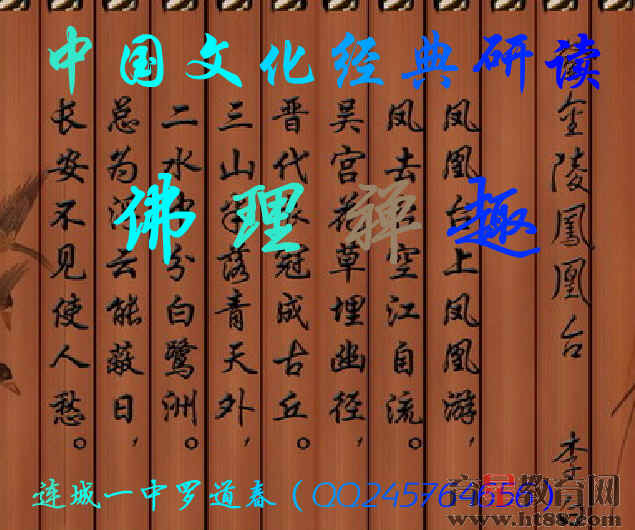 中国文化经典研读
佛理禅趣
金陵鳳凰台 李白
凤凰台上凤凰游,
凤去台空江自流。
吴宫花草埋幽径,
晋代衣冠成古丘。
三山半落青天外,
二水中分白鹭洲。
总为浮云能蔽日,
长安不见使人愁。
连城一中罗道春(QQ245764656)
育星教育网
www.ht88.com